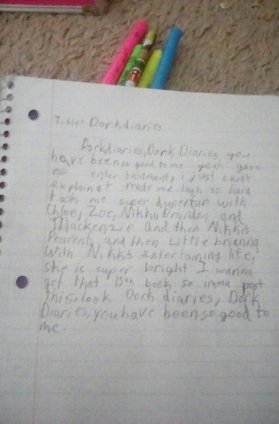 Title: Dorkdiaries
Dorkdiaries, Dork Diaries you
have been so good to me yeah gave
me entertainment, i just can't
explain it made me laugh so hard
took me super duper far with
Chloe, Zoe, Nikky, Brandon, and
Mackenzie and then Nikkis
Pearents and then little brianna
With Nikkis entertaining life,
she is super bright I wanna
get that 15th book so imma post
this, look Dork diaries, Dork
Diaries, you have been so good to
me.